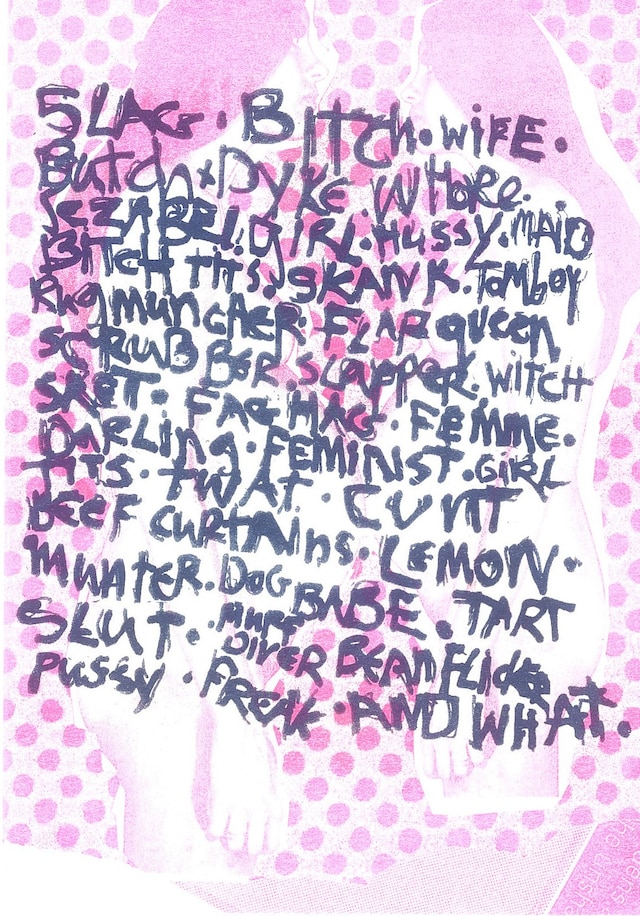 SLAG. BITCH. WIFE.
Butch x DYKE. WHORE.
JEZABEL! GIRL. HUSSY. MAID
BITCH TITS. SKANK. TOMBOY
RUG MUNCHER. FLAP QUEEN
SCRUBBER. SLAPPER. WITCH
SKETT. FAG HAG. FEMME.
DARLING. FEMINIST. GIRL
TITS. TWAT. CUNT
BEEF CURTAINS. LEMON.
MUNTER. DOG BABE. TART
SLUT. MUFF DIVER BEAN FLICKER
PUSSY. FREAK. AND WHAT.